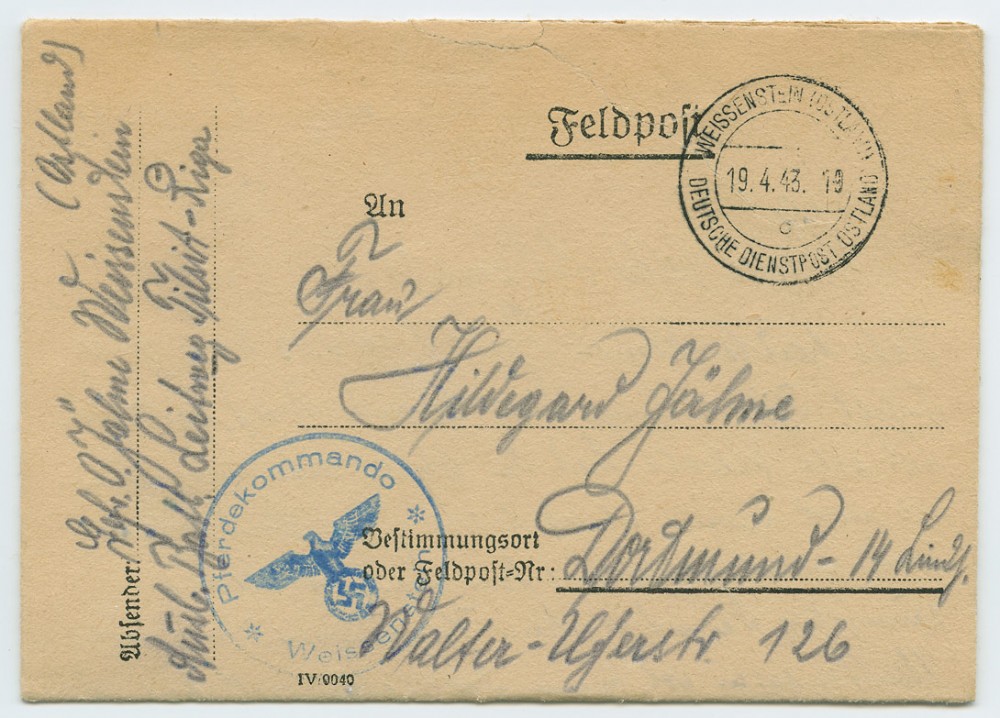 Feldpost
WEISSENSTEIN (OSTLAND)
19.4.43. 10
c
DEUTSCHE DIENSTPOST OSTLAND
An
Frau
Hildegard Jähme
Bestimmungsort
oder Feldpost-Nr:
Dortmund-14
Walter-Ugerstr 126
Pferdekommando
* Weissenstein *
IV/9040
Absender:
O. Jähme Weissenstein (Ostland)
Leitweg Tilsit-Riga